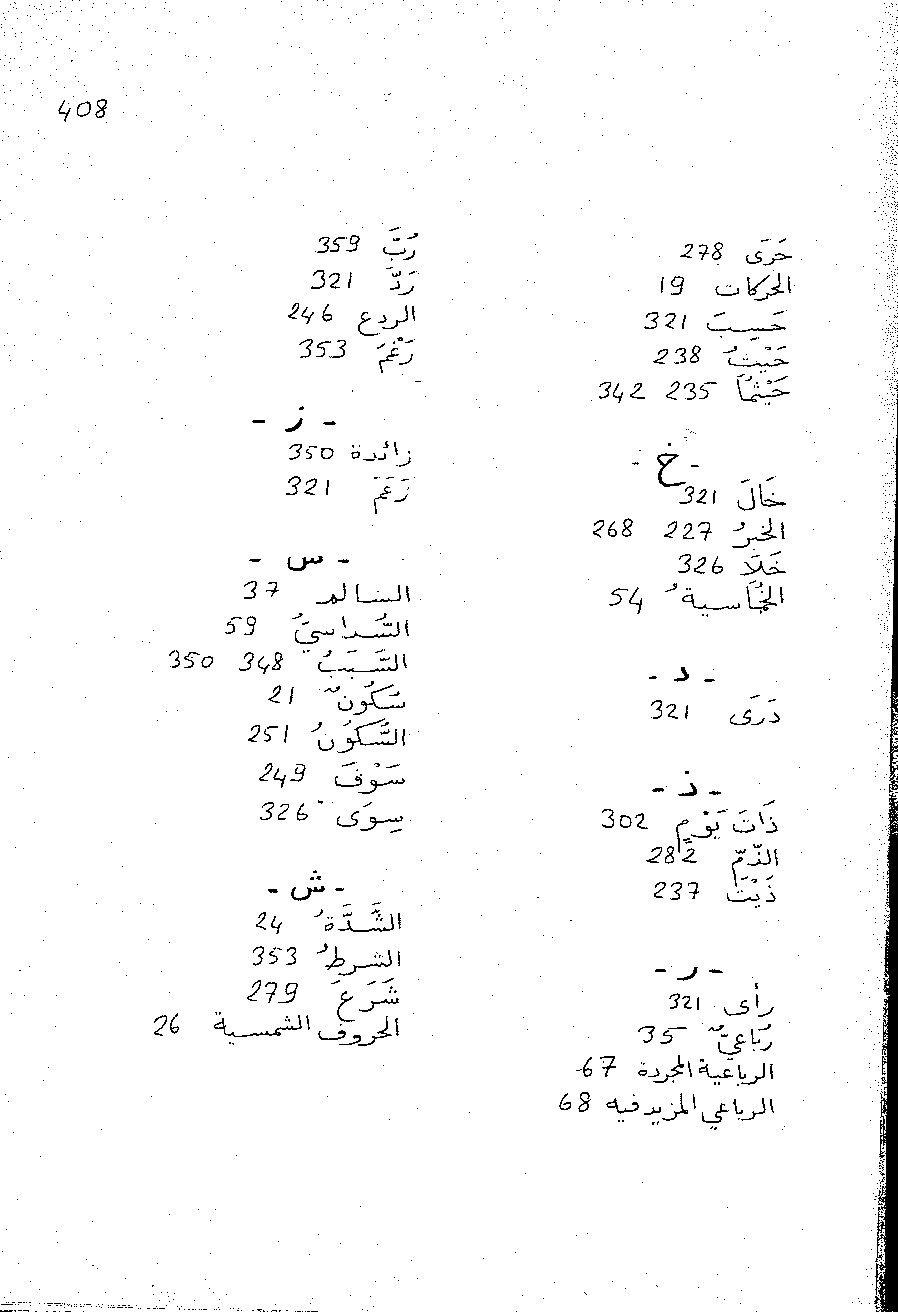 408
حَرَى 278
الحركات 19
حَسِبَ 321
حَيْثُ 238
حَيْثُمَا 235 342
- خ -
خَالَ 321
الخبرُ 227 268
خَلَا 326
الخُمَاسيةُ 54
- د -
دَرَى 321
- ذ -
ذَاتَ يَوْمٍ 302
الذّمّ 282
ذَيْتَ 237
- ر -
رأى 321
رُبَاعيٌّ 35
الرباعية المجردة 67
الرباعي المزيد فيه 68
رُبَّ 359
رَدَّ 321
الردع 246
رَغْمَ 353
- ز -
زائدة 350
زَعَمَ 321
- س -
السالم 37
السُّداسيُّ 59
السَّبَبُ 348 350
سُكُونٌ 21
السُّكُونُ 251
سَوْفَ 249
سِوَى 326
- ش -
الشَّدَّةُ 24
الشرطُ 353
شَرَعَ 279
الحروف الشمسية 26